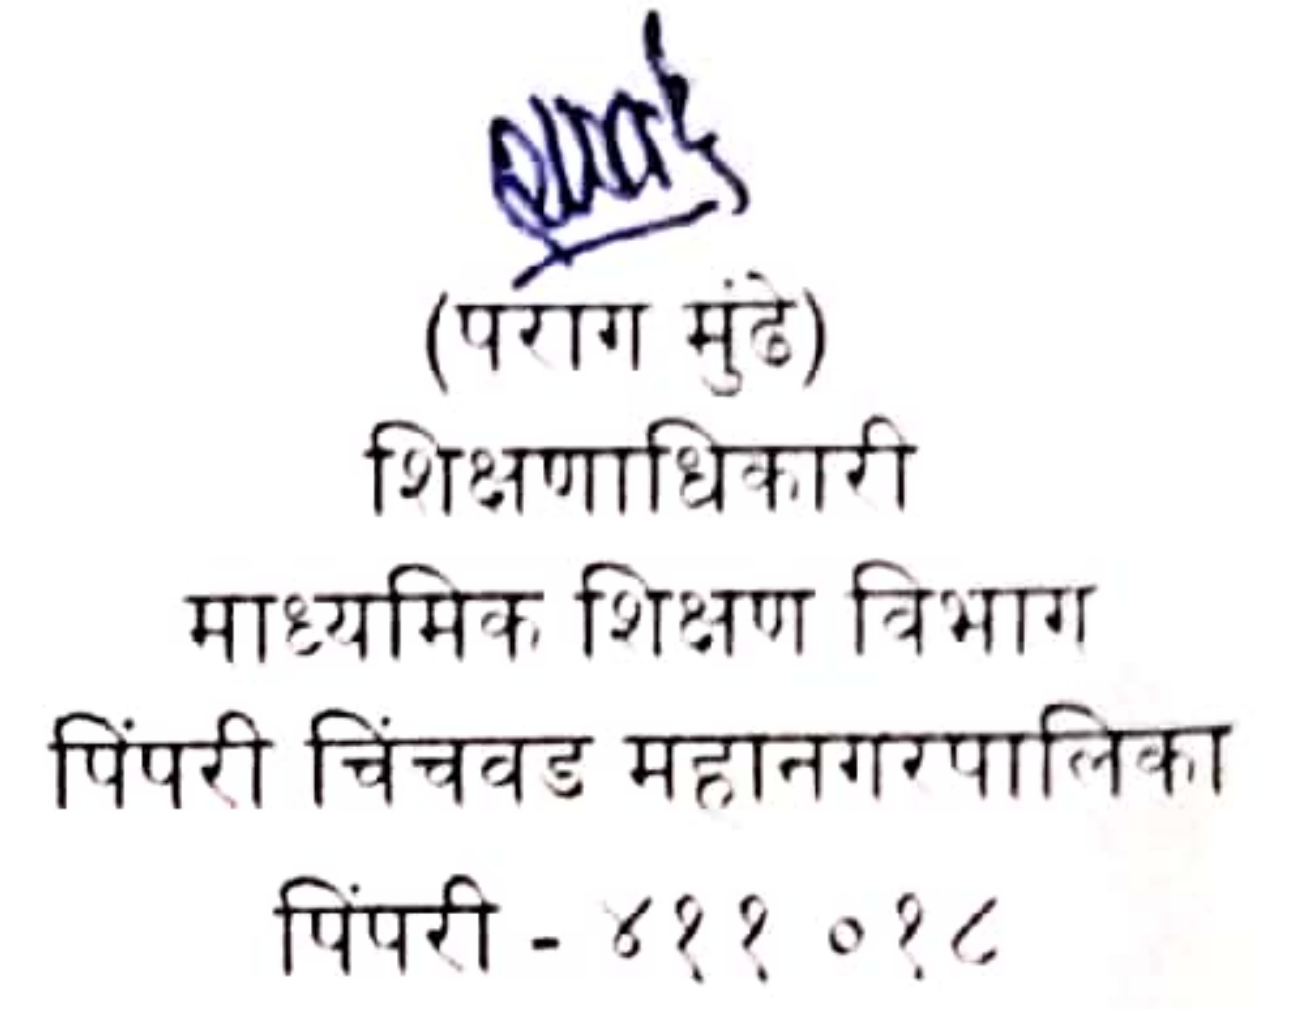 (पराग मुंढे)
शिक्षणाधिकारी
माध्यमिक शिक्षण विभाग
पिंपरी चिंचवड महानगरपालिका
पिंपरी - ४११ ०१८